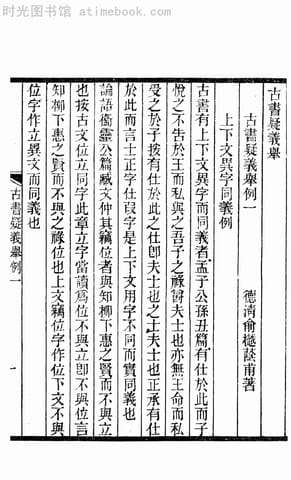 时光图书馆 - atimebook.com
古書疑義舉
古書疑義舉例一
德清俞樾蔭甫著
上下文異字同義例
古書有上下文異字而同義者孟子公孫丑篇有仕於此而子
悅之不告於王而私與之吾子之祿爵夫士也亦無王命而私
受之於子按有仕於此之仕卽夫士也之士夫士也正承有仕
於此而言士正字仕叚字是上下文用字不同而實同義也
論語衞靈公篇臧文仲其竊位者與知柳下惠之賢而不與立
也按古文位立同字此章立字當讀爲位不與立卽不與位言
知柳下惠之賢而不與之祿位也上文竊位字作位下文不與
位字作立異文而同義也
古書疑義舉例一
一